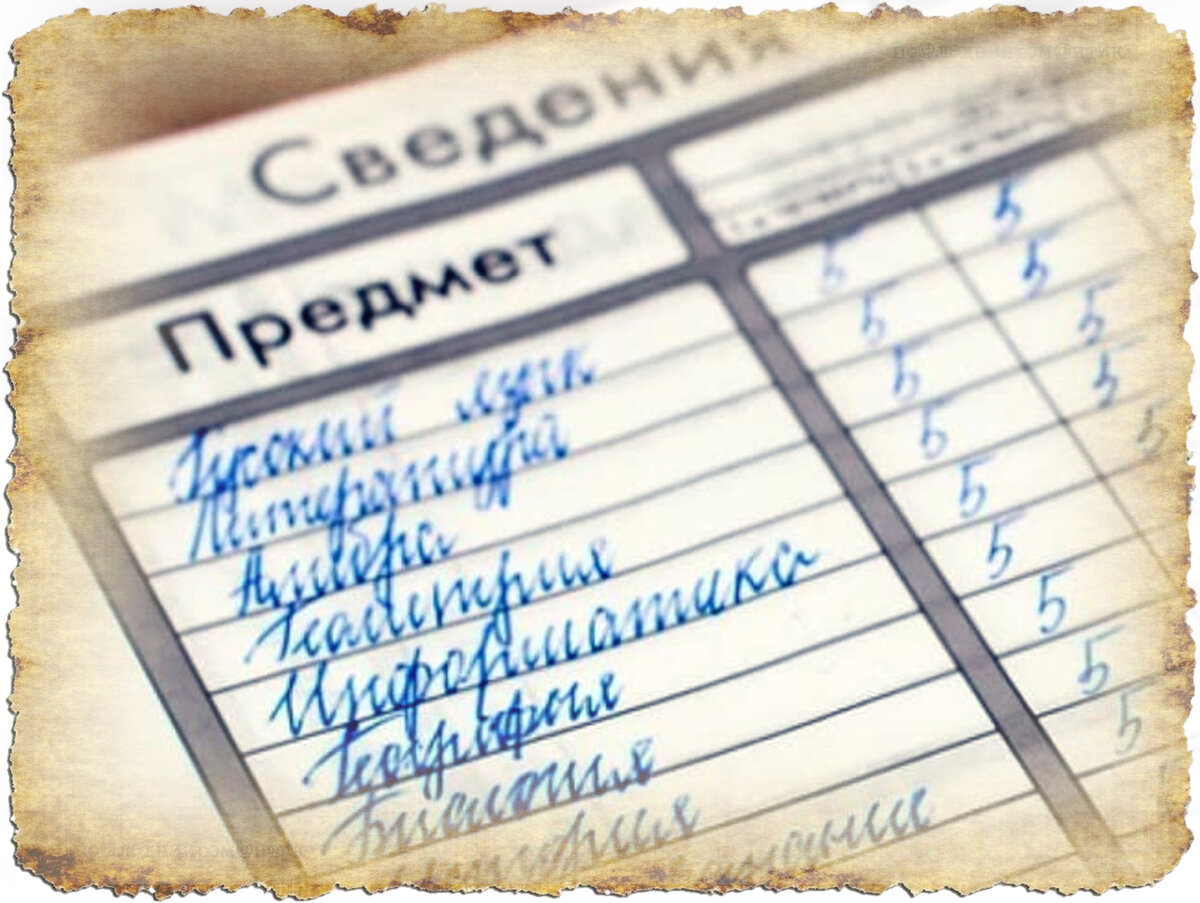 Сведения
Предмет
Русский язык 5 5
Литература 5 5
Алгебра 5 5
Геометрия 5 5
Информатика 5 5
География 5
Биология 5
История 5
5